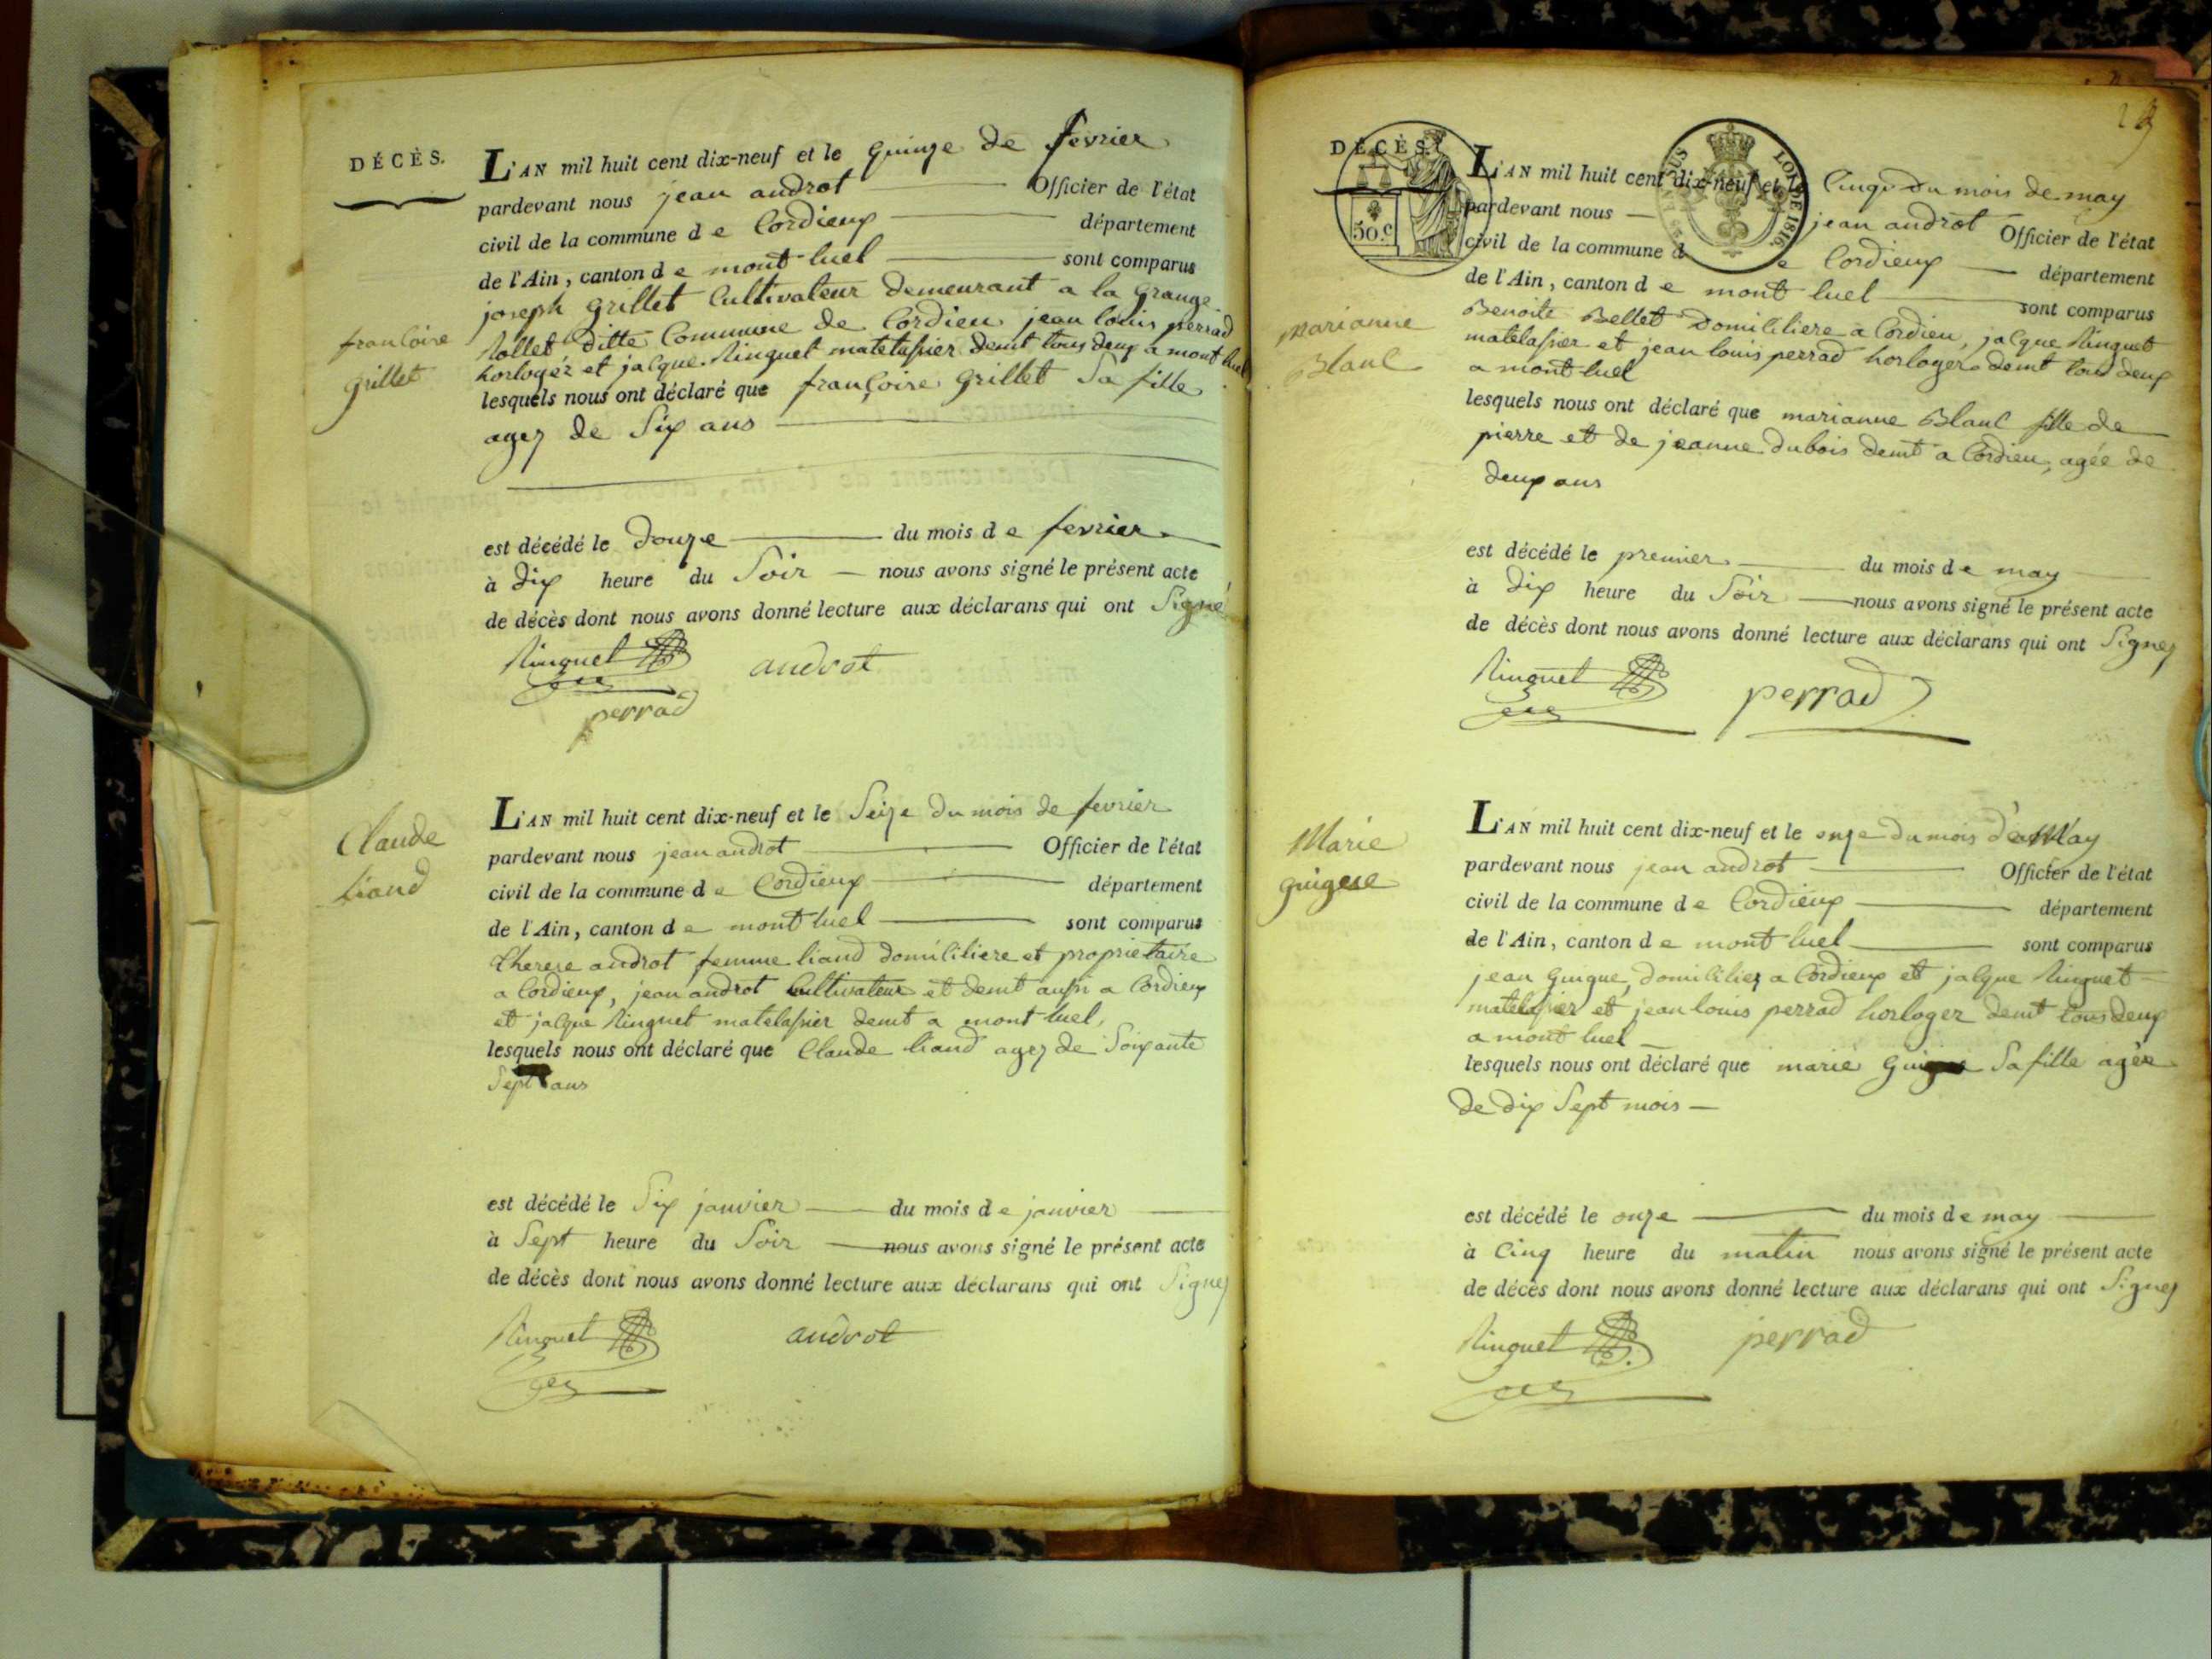 DÉCÈS.
L'AN mil huit cent dix-neuf et le quinze de fevrier
pardevant nous jean androt Officier de l'état
civil de la commune de Cordieux département
de l'Ain, canton de mont luel sont comparus
joseph grillet Cultivateur demeurant a la Grange
Rollet ditte Commune de Cordieu jean louis perrad
horloger et jacque Ringuet matelassier demt tous deux a mont luel
francoise
grillet
lesquels nous ont déclaré que francoise grillet Sa fille
agez de Six ans
est décédé le Douze du mois de fevrier
à dix heure du Soir nous avons signé le présent acte
de décès dont nous avons donné lecture aux déclarans qui ont Signé
Ringuet androt
perrad
Claude
liand
L'AN mil huit cent dix-neuf et le Seize du mois de fevrier
pardevant nous jean androt Officier de l'état
civil de la commune de Cordieux département
de l'Ain, canton de mont luel sont comparus
therese androt femme liand domiciliere et proprietaire
a Cordieux, jean androt Cultivateur et demt aussi a Cordieux
et jacque Ringuet matelassier demt a mont luel,
lesquels nous ont déclaré que Claude liand agez de Soixante
Sept ans
est décédé le Six janvier du mois de janvier
à Sept heure du Soir nous avons signé le présent acte
de décès dont nous avons donné lecture aux déclarans qui ont Signez
Ringuet androt
DÉCÈS.
50 c.
LOI DE 1816.
L'AN mil huit cent dix-neuf et le Cinq du mois de may
pardevant nous jean androt Officier de l'état
civil de la commune de Cordieux département
de l'Ain, canton de mont luel sont comparus
marianne
Blanc
Benoite Bellet Domiciliere a Cordieu, jacque Ringuet
matelassier et jean louis perrad horloger demt tous deux
a mont luel
lesquels nous ont déclaré que marianne Blanc fille de
pierre et de jeanne dubois demt a Cordieu, agée de
deux ans
est décédé le premier du mois de may
à Dix heure du Soir nous avons signé le présent acte
de décès dont nous avons donné lecture aux déclarans qui ont Signez
Ringuet perrad
Marie
guigue
L'AN mil huit cent dix-neuf et le onze du mois de May
pardevant nous jean androt Officier de l'état
civil de la commune de Cordieux département
de l'Ain, canton de mont luel sont comparus
jean Guigue, domiciliez a Cordieux et jacque Ringuet
matelassier et jean louis perrad horloger demt tous deux
a mont luel
lesquels nous ont déclaré que marie Guigue Sa fille agée
de dix Sept mois
est décédé le onze du mois de may
à Cinq heure du matin nous avons signé le présent acte
de décès dont nous avons donné lecture aux déclarans qui ont Signez
Ringuet perrad